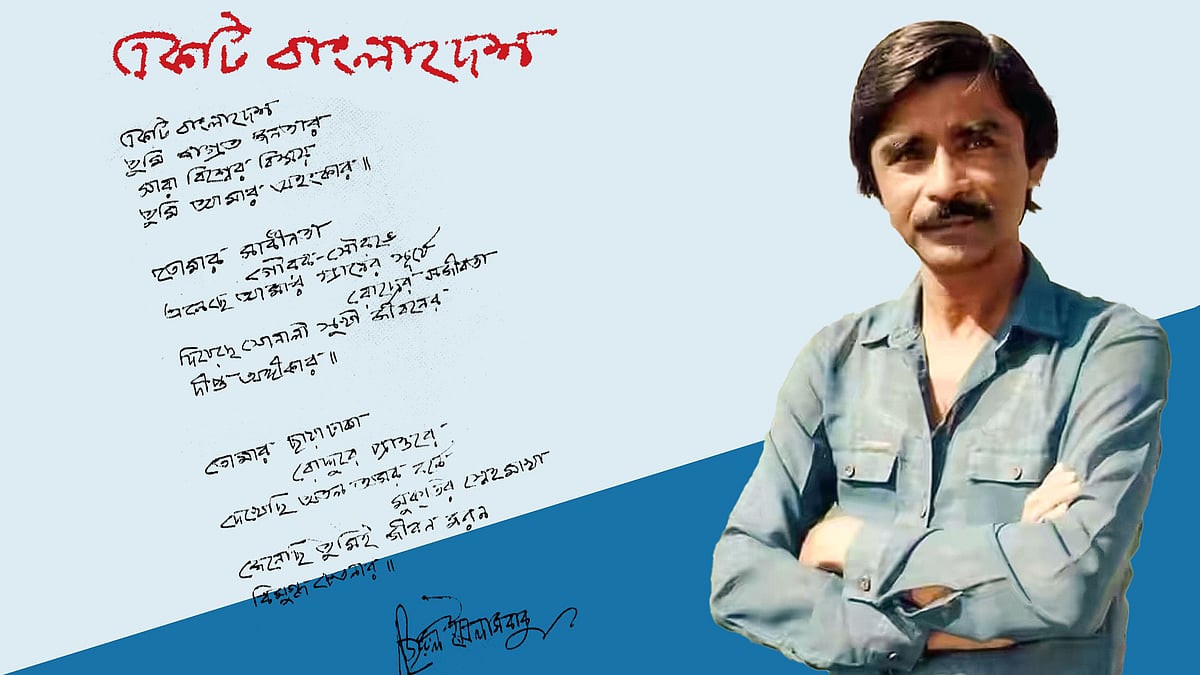 একটি বাংলাদেশ
একটি বাংলাদেশ
তুমি জাগ্রত জনতার
সারা বিশ্বের বিস্ময়
তুমি আমার অহংকার॥
তোমার স্বাধীনতা
গৌরব-সৌরভে
এনেছে আমার প্রাণের সূর্যে
রোদের সজীবতা
দিয়েছে সোনালী সুখী জীবনের
দীপ্ত অঙ্গীকার॥
তোমার ছায়া ঢাকা
রোদ্দুরে প্রান্তরে
দেখেছি অতল অমর বর্ণে
মুক্তির স্নেহমাখা
জেনেছি তুমিই জীবন মরণ
বিমুগ্ধ চেতনার॥